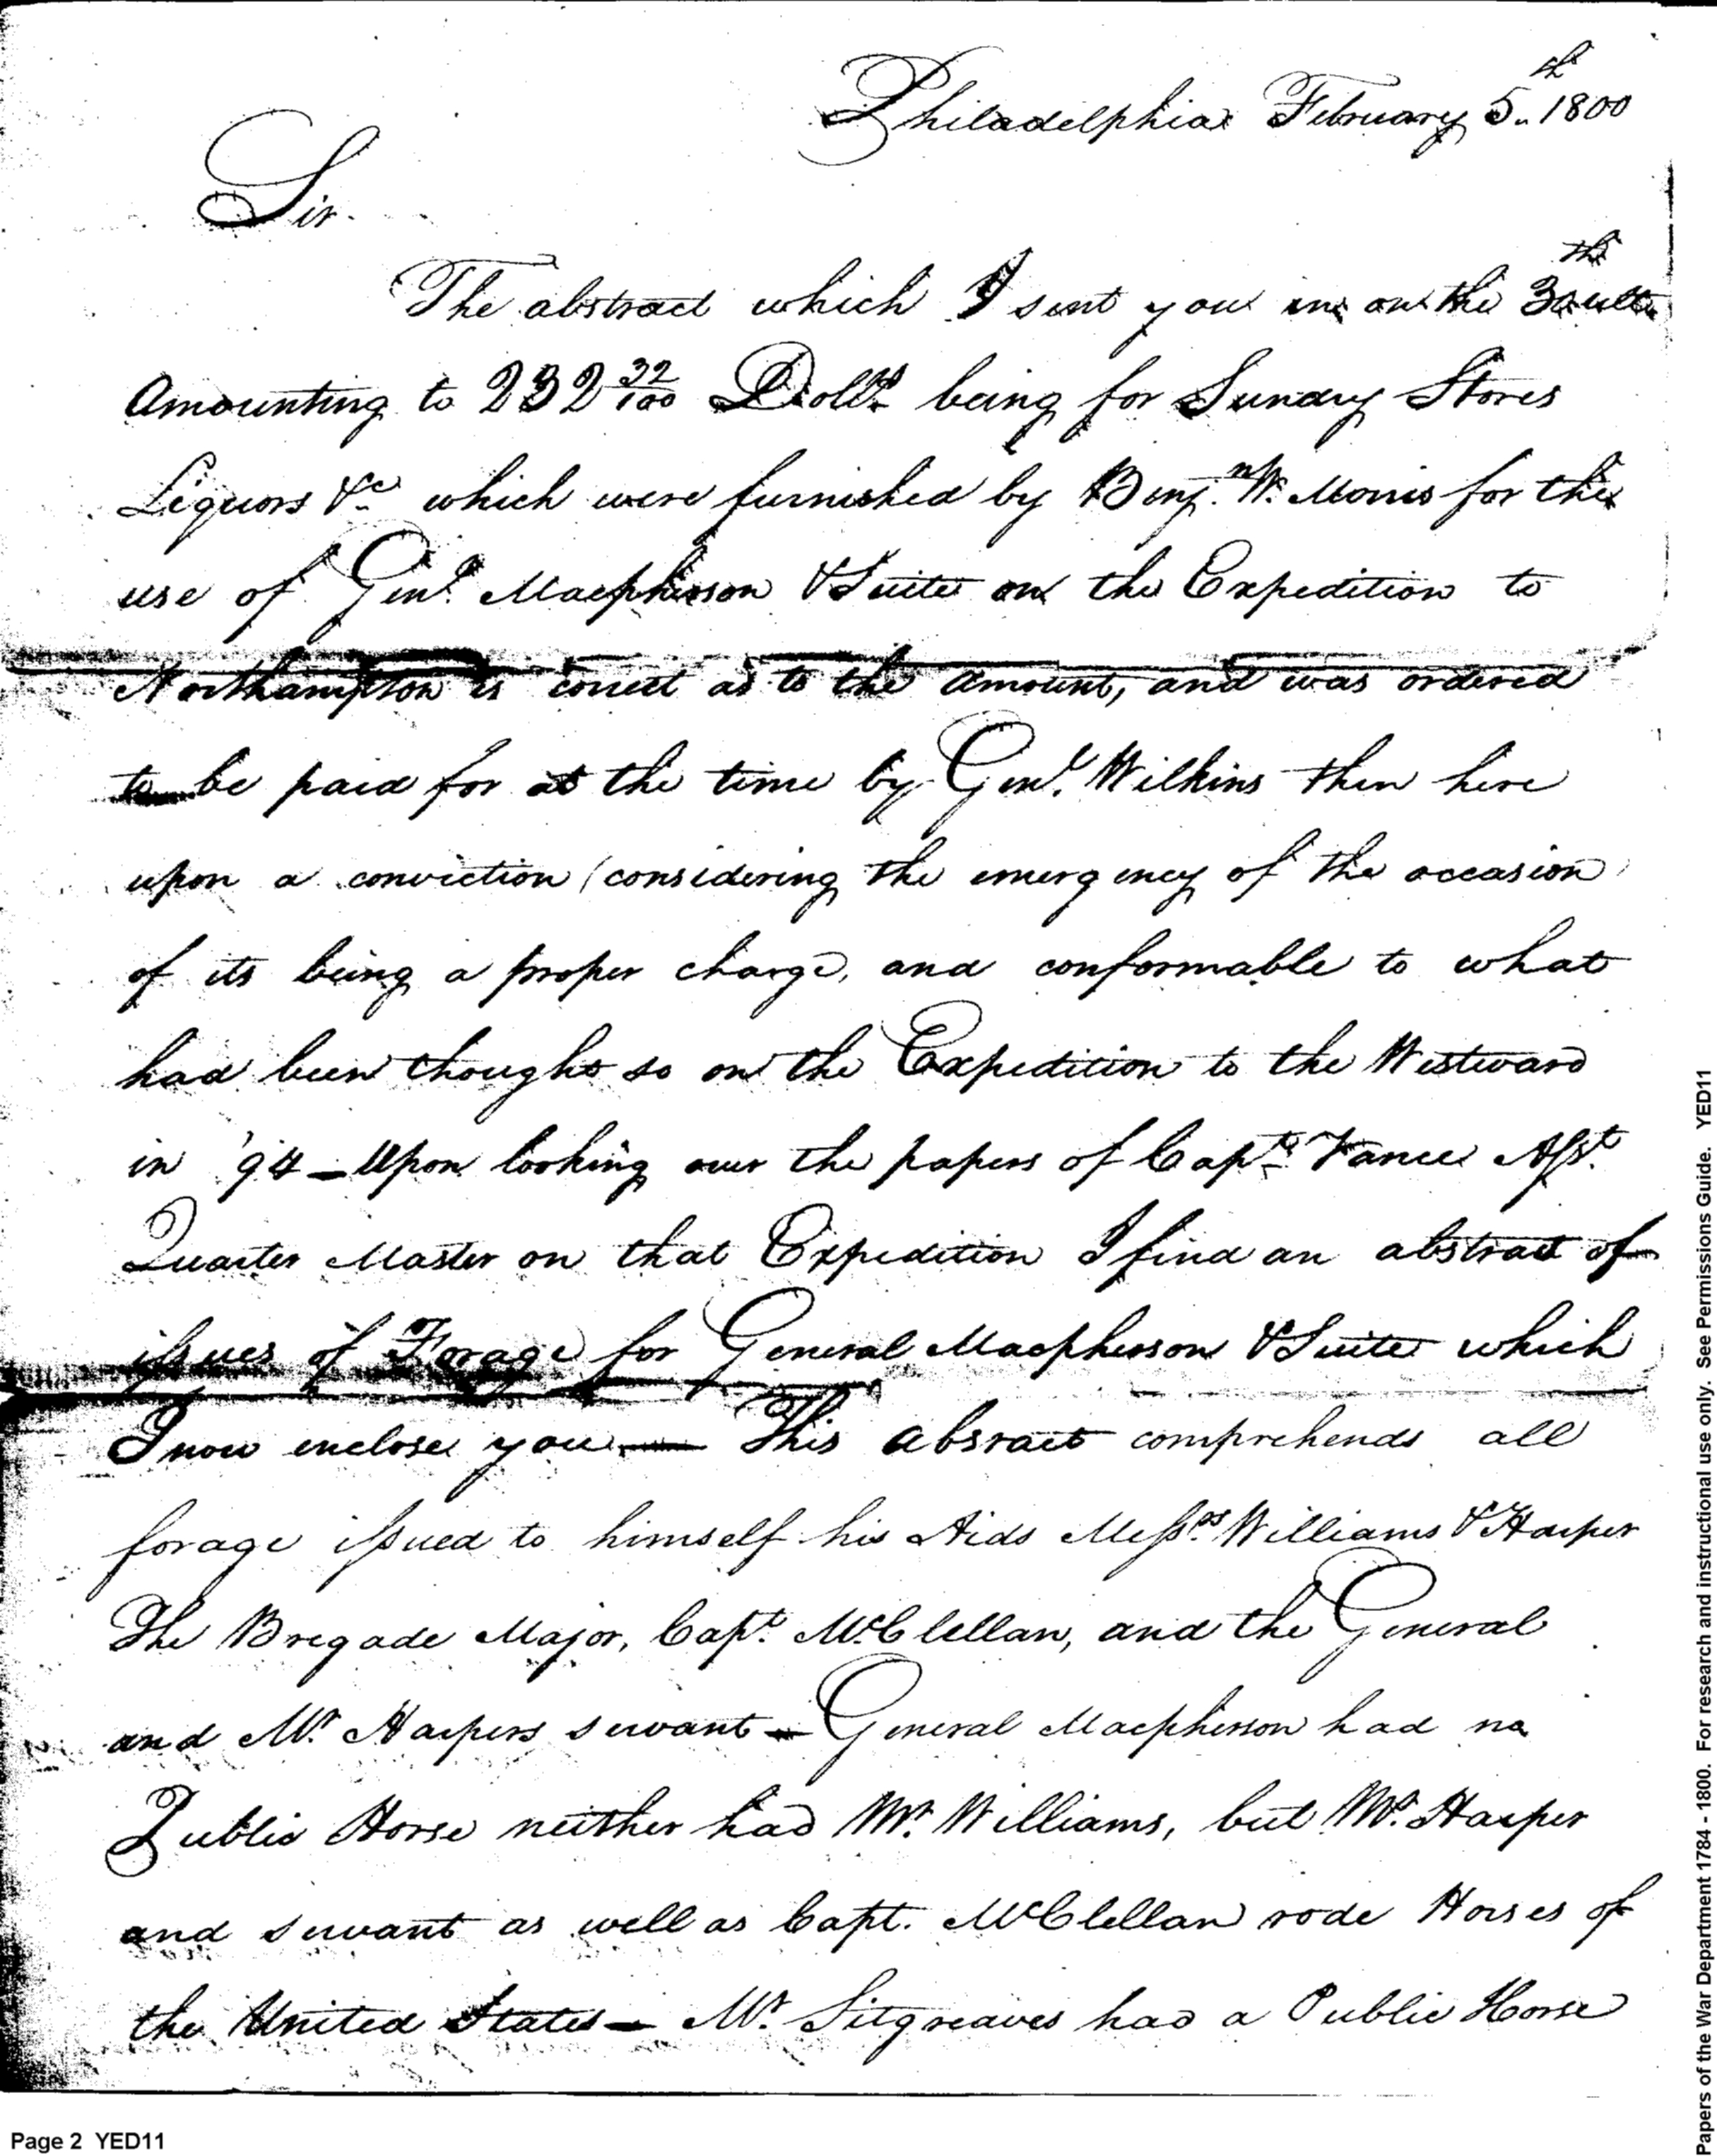 Philadelphia February 5th 1800
Sir.
The abstract which I sent you in on the 30th ulto
Amounting to 232 32/100 Dolls being for Sundry Stores
Liquors &c which were furnished by Benjn W. Morris for the
use of Genl Macpherson & Suite on the Expedition to
Northampton is correct as to the Amount, and was ordered
to be paid for at the time by Genl. Wilkins then here
upon a conviction (considering the emergency of the occasion
of its being a proper charge, and conformable to what
had been thought so on the Expedition to the Westward
in '94 — Upon looking over the papers of Capt. Vance Asst.
Quarter Master on that Expedition I find an abstract of
issues of Forage for General Macpherson & Suite which
I now enclose you — This absract comprehends all
forage issued to himself his Aids Messrs Williams & Harper
The Brigade Major, Capt. McClellan, and the General
and Mr Harpers servant — General Macpherson had no
Public Horse neither had Mr. Williams, but Mr. Harper
and servant as well as Capt. McClellan rode Horses of
the United States — Mr. Sitgreaves had a Public Horse
Page 2 YED11
Papers of the War Department 1784 - 1800. For research and instructional use only. See Permissions Guide. YED11